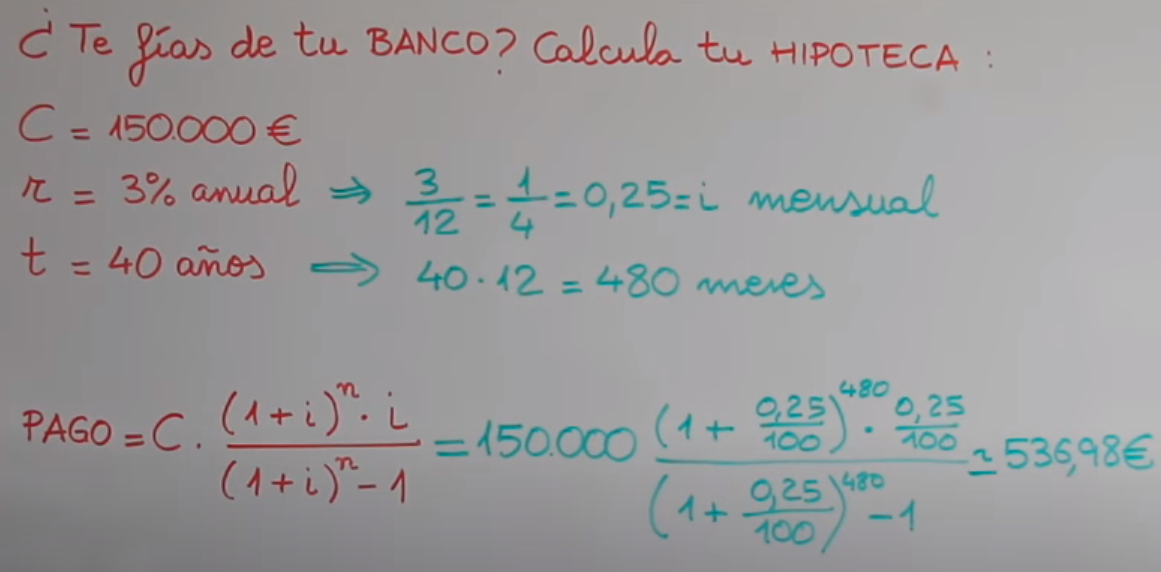 ¿Te fías de tu BANCO? Calcula tu HIPOTECA:
C = 150.000 €
r = 3% anual ⇒ 3/12 = 1/4 = 0,25 = i mensual
t = 40 años ⇒ 40·12 = 480 meses
PAGO = C · ((1+i)^n · i)/((1+i)^n - 1) = 150.000 ((1 + 0,25/100)^480 · 0,25/100)/((1 + 0,25/100)^480 - 1) ≃ 536,98€